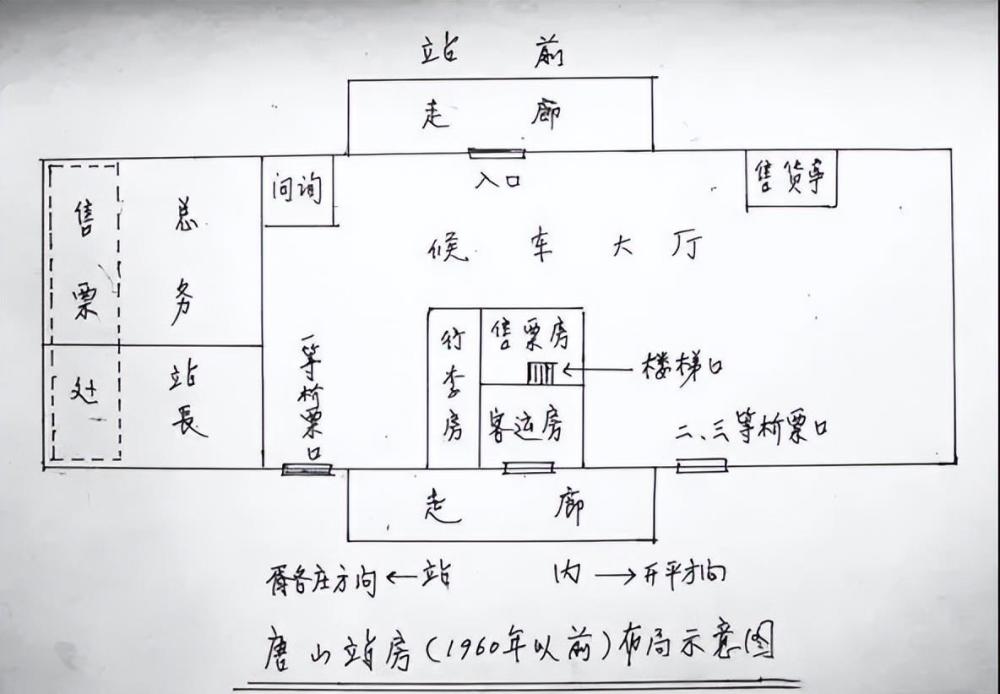 站 前
走 廊
入口
问询
售货亭
售票处
总务
候车大厅
售票房
行李房
楼梯口
站長
一等析票口
客运房
二、三等析票口
走 廊
胥各庄方向←站 内→开平方向
唐山站房(1960年以前)布局示意图